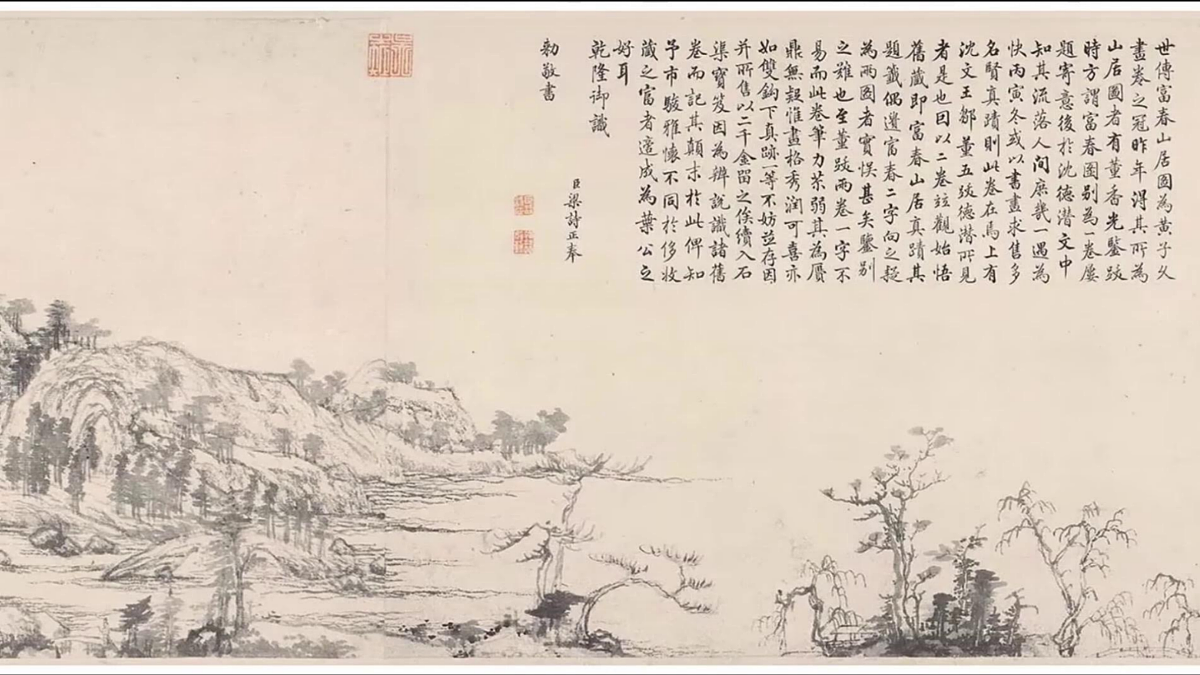 世傳富春山居圖為黃子久
畫卷之冠昨年得其所為
山居圖者有董香光鑒跋
時方謂富春圖別為一卷屢
題寄意後於沈德潛文中
知其流落人間庶幾一遇為
快丙寅冬或以書畫求售多
名賢真蹟則此卷在焉上有
沈文王鄒董五跋德潛所見
者是也因以二卷竝觀始悟
舊藏即富春山居真蹟其
題籤偶遺富春二字向之疑
為兩圖者實悞甚矣鑒別
之難也至董跋兩卷一字不
易而此卷筆力苶弱其為贗
鼎無疑惟畫格秀潤可喜亦
如雙鈎下真跡一等不妨竝存因
并所售以二千金留之俟續入石
渠寶笈因為辨說識諸舊
卷而記其顛末於此俾知
予市駿雅懷不同於侈收
藏之富者遂成為葉公之
好耳
乾隆御識
臣梁詩正奉
勅敬書